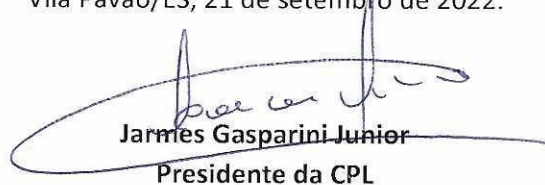 Vila Pavão/ES, 21 de setembro de 2022.
Jarmes Gasparini Junior
Presidente da CPL